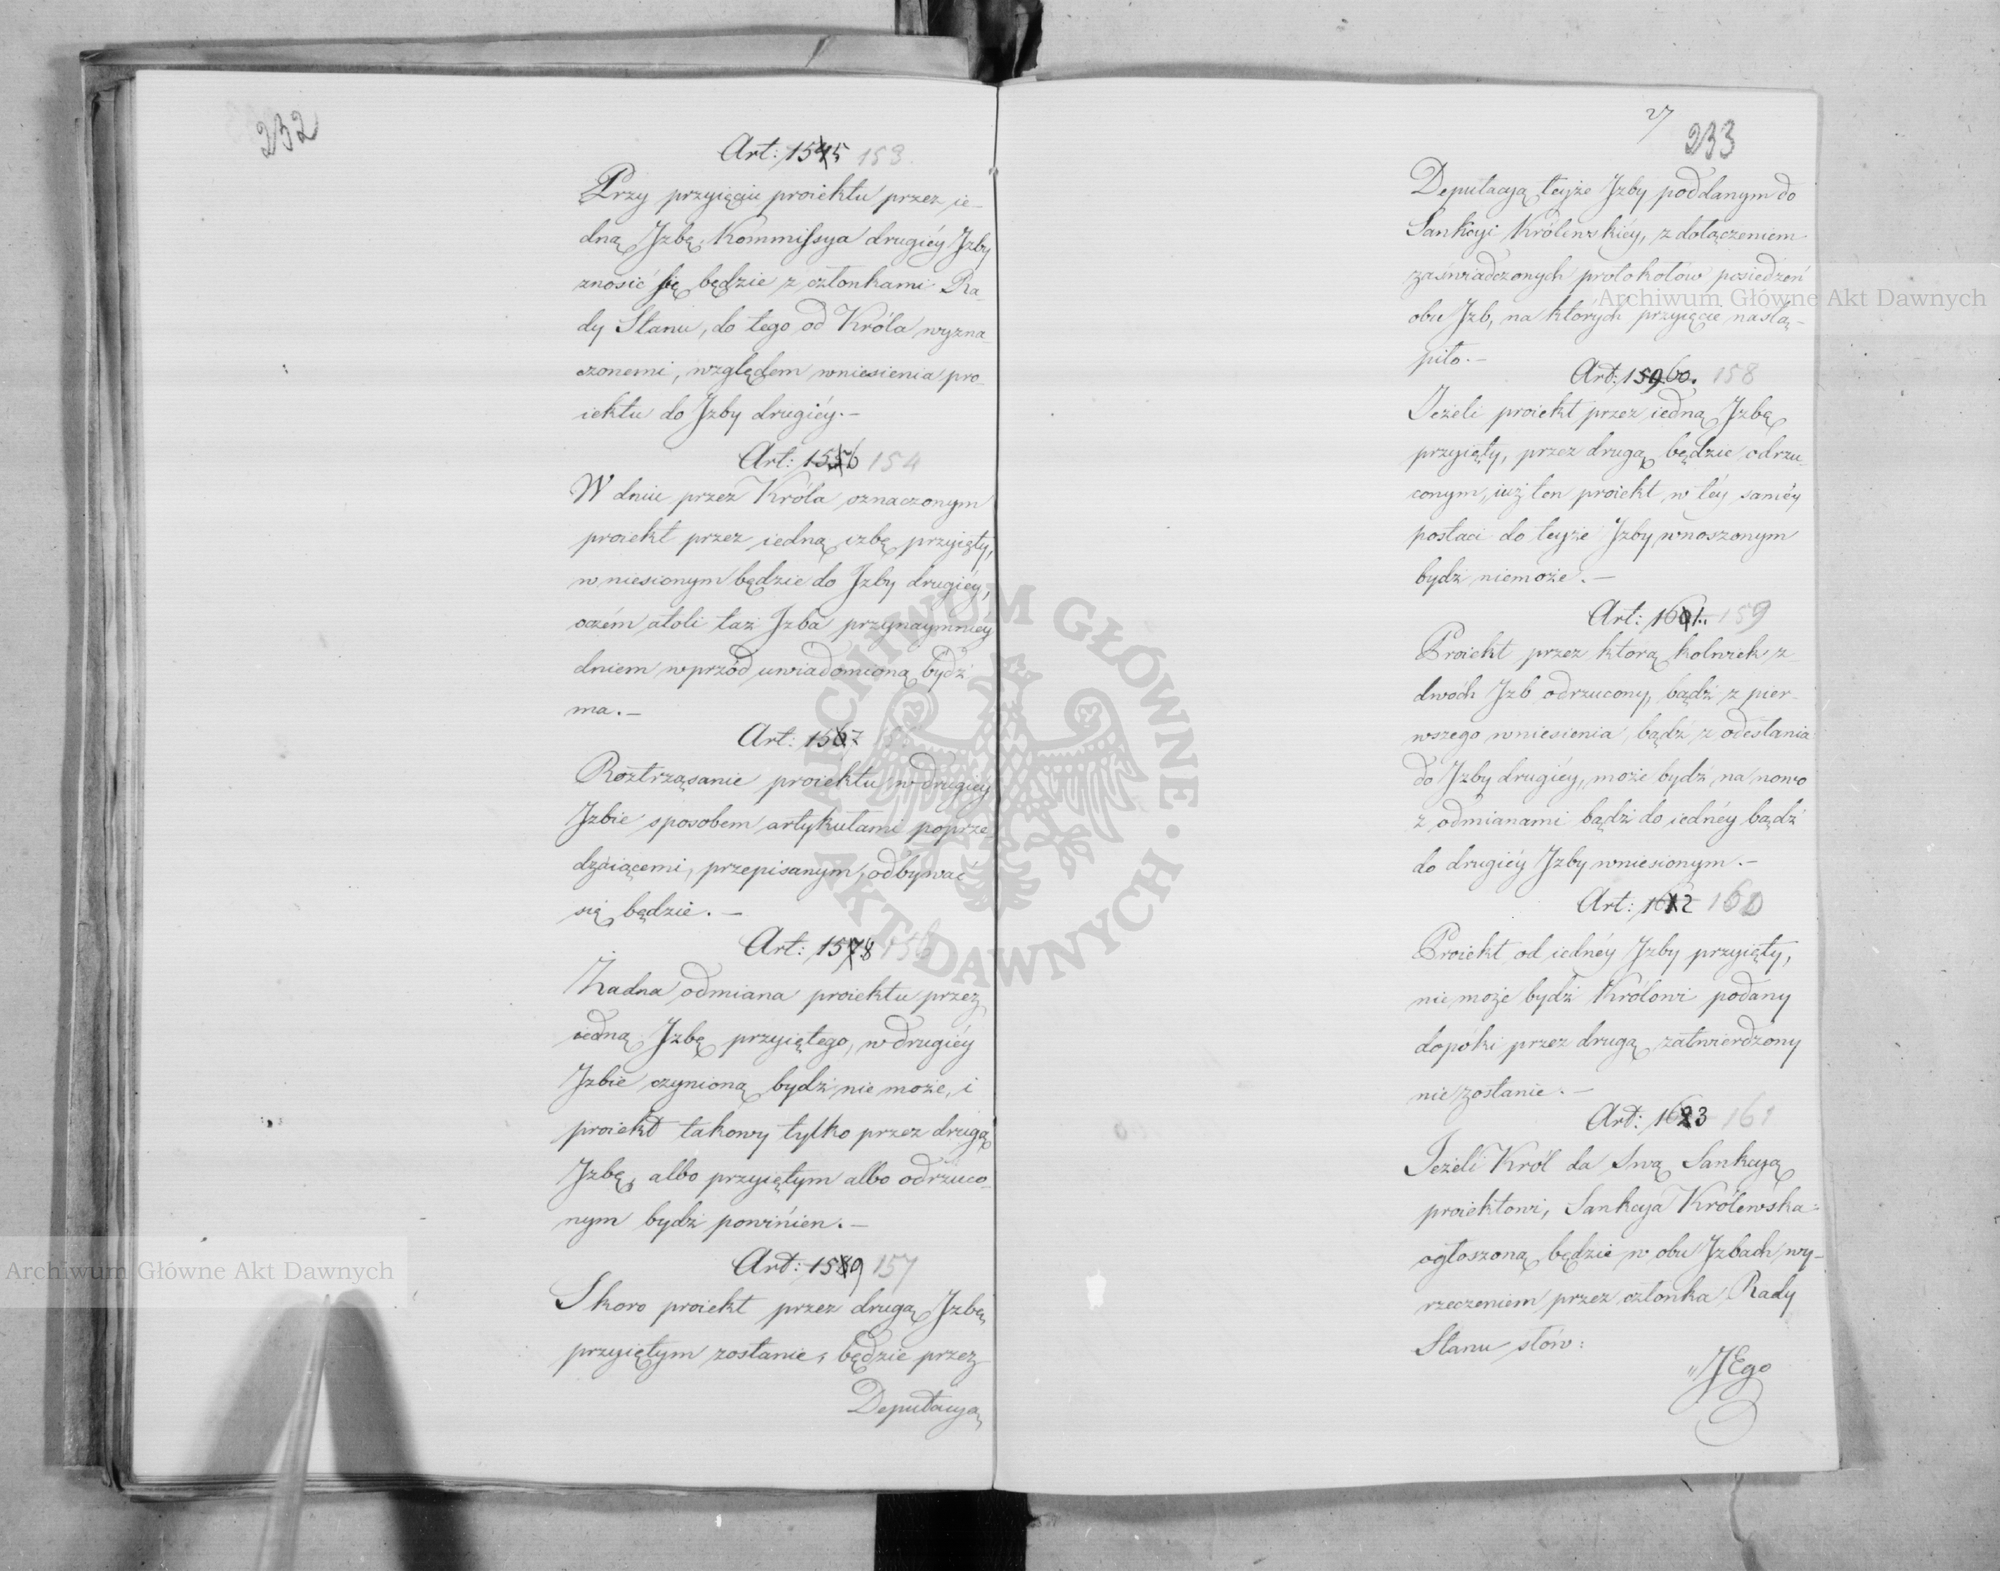 232
Art: 1545 153.
Przy przyięciu proiektu przez ie-
dną Izbę, Kommissya drugiéy Izby
znosić się będzie z członkami Ra-
dy Stanu, do tego od Króla wyzna-
czonemi, względem wniesienia pro-
iektu do Izby drugiéy.-
Art: 1556 154
W dniu przez Króla oznaczonym
proiekt przez iedną izbę przyięty,
wniesionym będzie do Izby drugiéy,
oczém atoli taż Izba przynaymniey
dniem wprzód uwiadomioną bydź
ma.-
Art: 1567
Roztrząsanie proiektu w drugiéy
Izbie sposobem artykułami poprze-
dzaiącemi, przepisanym, odbywać
się będzie.-
Art: 1578 156
Żadna odmiana proiektu przez
iedną Izbę przyiętego, w drugiéy
Izbie czynioną bydź nie może, i
proiekt takowy tylko przez drugą
Izbę, albo przyiętym albo odrzuco-
nym bydź powinien.-
Art: 1589 157
Skoro proiekt przez drugą Izbę
przyiętym zostanie, będzie przez
Deputacyą
27
233
Deputacyą teyże Izby poddanym do
Sankcyi Królewskiéy, z dołączeniem
zaświadczonych protokołów posiedzeń
obu Izb, na których przyięcie nastą-
piło.-
Art: 15960. 158
Ieżeli proiekt przez iedną Izbę
przyięty, przez drugą będzie odrzu-
conym, iuż ten proiekt w téy saméy
postaci do teyże Izby wnoszonym
bydź niemoże.-
Art: 1601. 159
Proiekt przez którą kolwiek z
dwóch Izb odrzucony, bądź z pier-
wszego wniesienia, bądź z odesłania
do Izby drugiéy, może bydź na nowo
z odmianami bądź do iednéy bądź
do drugiéy Izby wniesionym.-
Art: 1612 160
Proiekt od iednéy Izby przyięty,
nie może bydź Królowi podany
dopóki przez drugą zatwierdzony
nie zostanie.-
Art: 1623 161
Ieżeli Król da Swą Sankcyą
proiektowi, Sankcyá Królewska
ogłoszoną będzie w obu Izbach wy-
rzeczeniem przez członka Rady
Stanu słów:
"JEgo
Archiwum Główne Akt Dawnych
Archiwum Główne Akt Dawnych
ARCHIWUM GŁÓWNE · AKT DAWNYCH ·